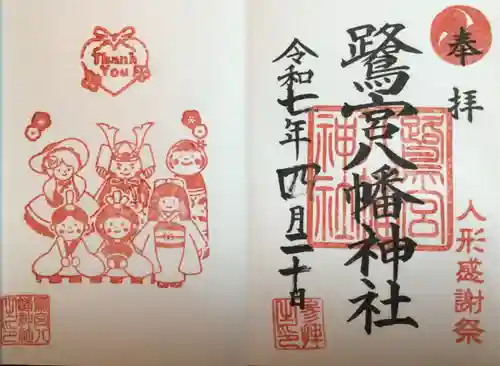 奉拝
鷺宮八幡神社
令和七年四月二十日
人形感謝祭
鷺宮
神社
Thank
You